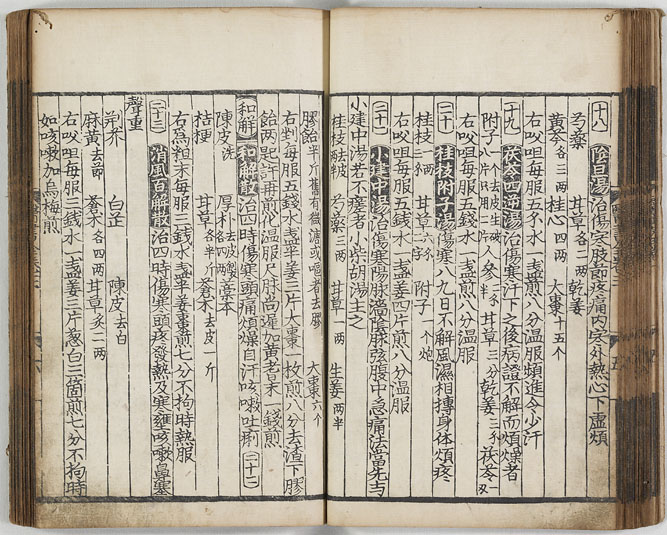 十八 陰旦湯治傷寒肢節疼痛內寒外熱心下虛煩
芍藥 甘草各二兩 乾姜
黃芩各三兩 桂心四兩 大棗十五个
右㕮咀每服五錢水一盞煎八分温服頻進令少汗
十九 茯苓四逆湯治傷寒汗下之後病證不解而煩燥者
附子 去皮生破八片只用二片 人參 甘草三分 乾姜三分 茯苓
右㕮咀每服五錢水一盞煎八分温服
二十 桂枝附子湯傷寒八九日不解風濕相摶身体煩疼
桂枝一兩 甘草 附子一个炮
右㕮咀每服五錢水一盞姜四片煎八分温服
二十一 小建中湯治傷寒陽脉濇陰脉弦腹中急痛法當先与
小建中湯若不瘥者小柴胡湯主之
桂枝去皮 芍藥三兩 甘草一兩 生姜
膠飴半斤舊有微溏或嘔者去膠 大棗六个
右剉每服五錢水一盞半姜三片大棗一枚煎八分去渣下膠
飴兩匙許再煎化温服尺脉尚遲加黃耆末一錢煎
和解 和解散治四時傷寒頭痛煩燥自汗咳嗽吐痢 二十二
陳皮洗 厚朴去皮姜製 藁本各四兩
桔梗 甘草各半斤 蒼术去皮一斤
右為粗末每服三錢水一盞半姜棗煎七分不拘時熱服
二十三 消風百解散治四時傷寒頭疼發熱及寒壅咳嗽鼻塞
聲重
荆芥 白芷 陳皮去白
麻黃去節 蒼术各四兩 甘草炙二兩
右㕮咀每服三錢水一盞姜三片葱白三箇煎七分不拘時
如咳嗽加烏梅煎